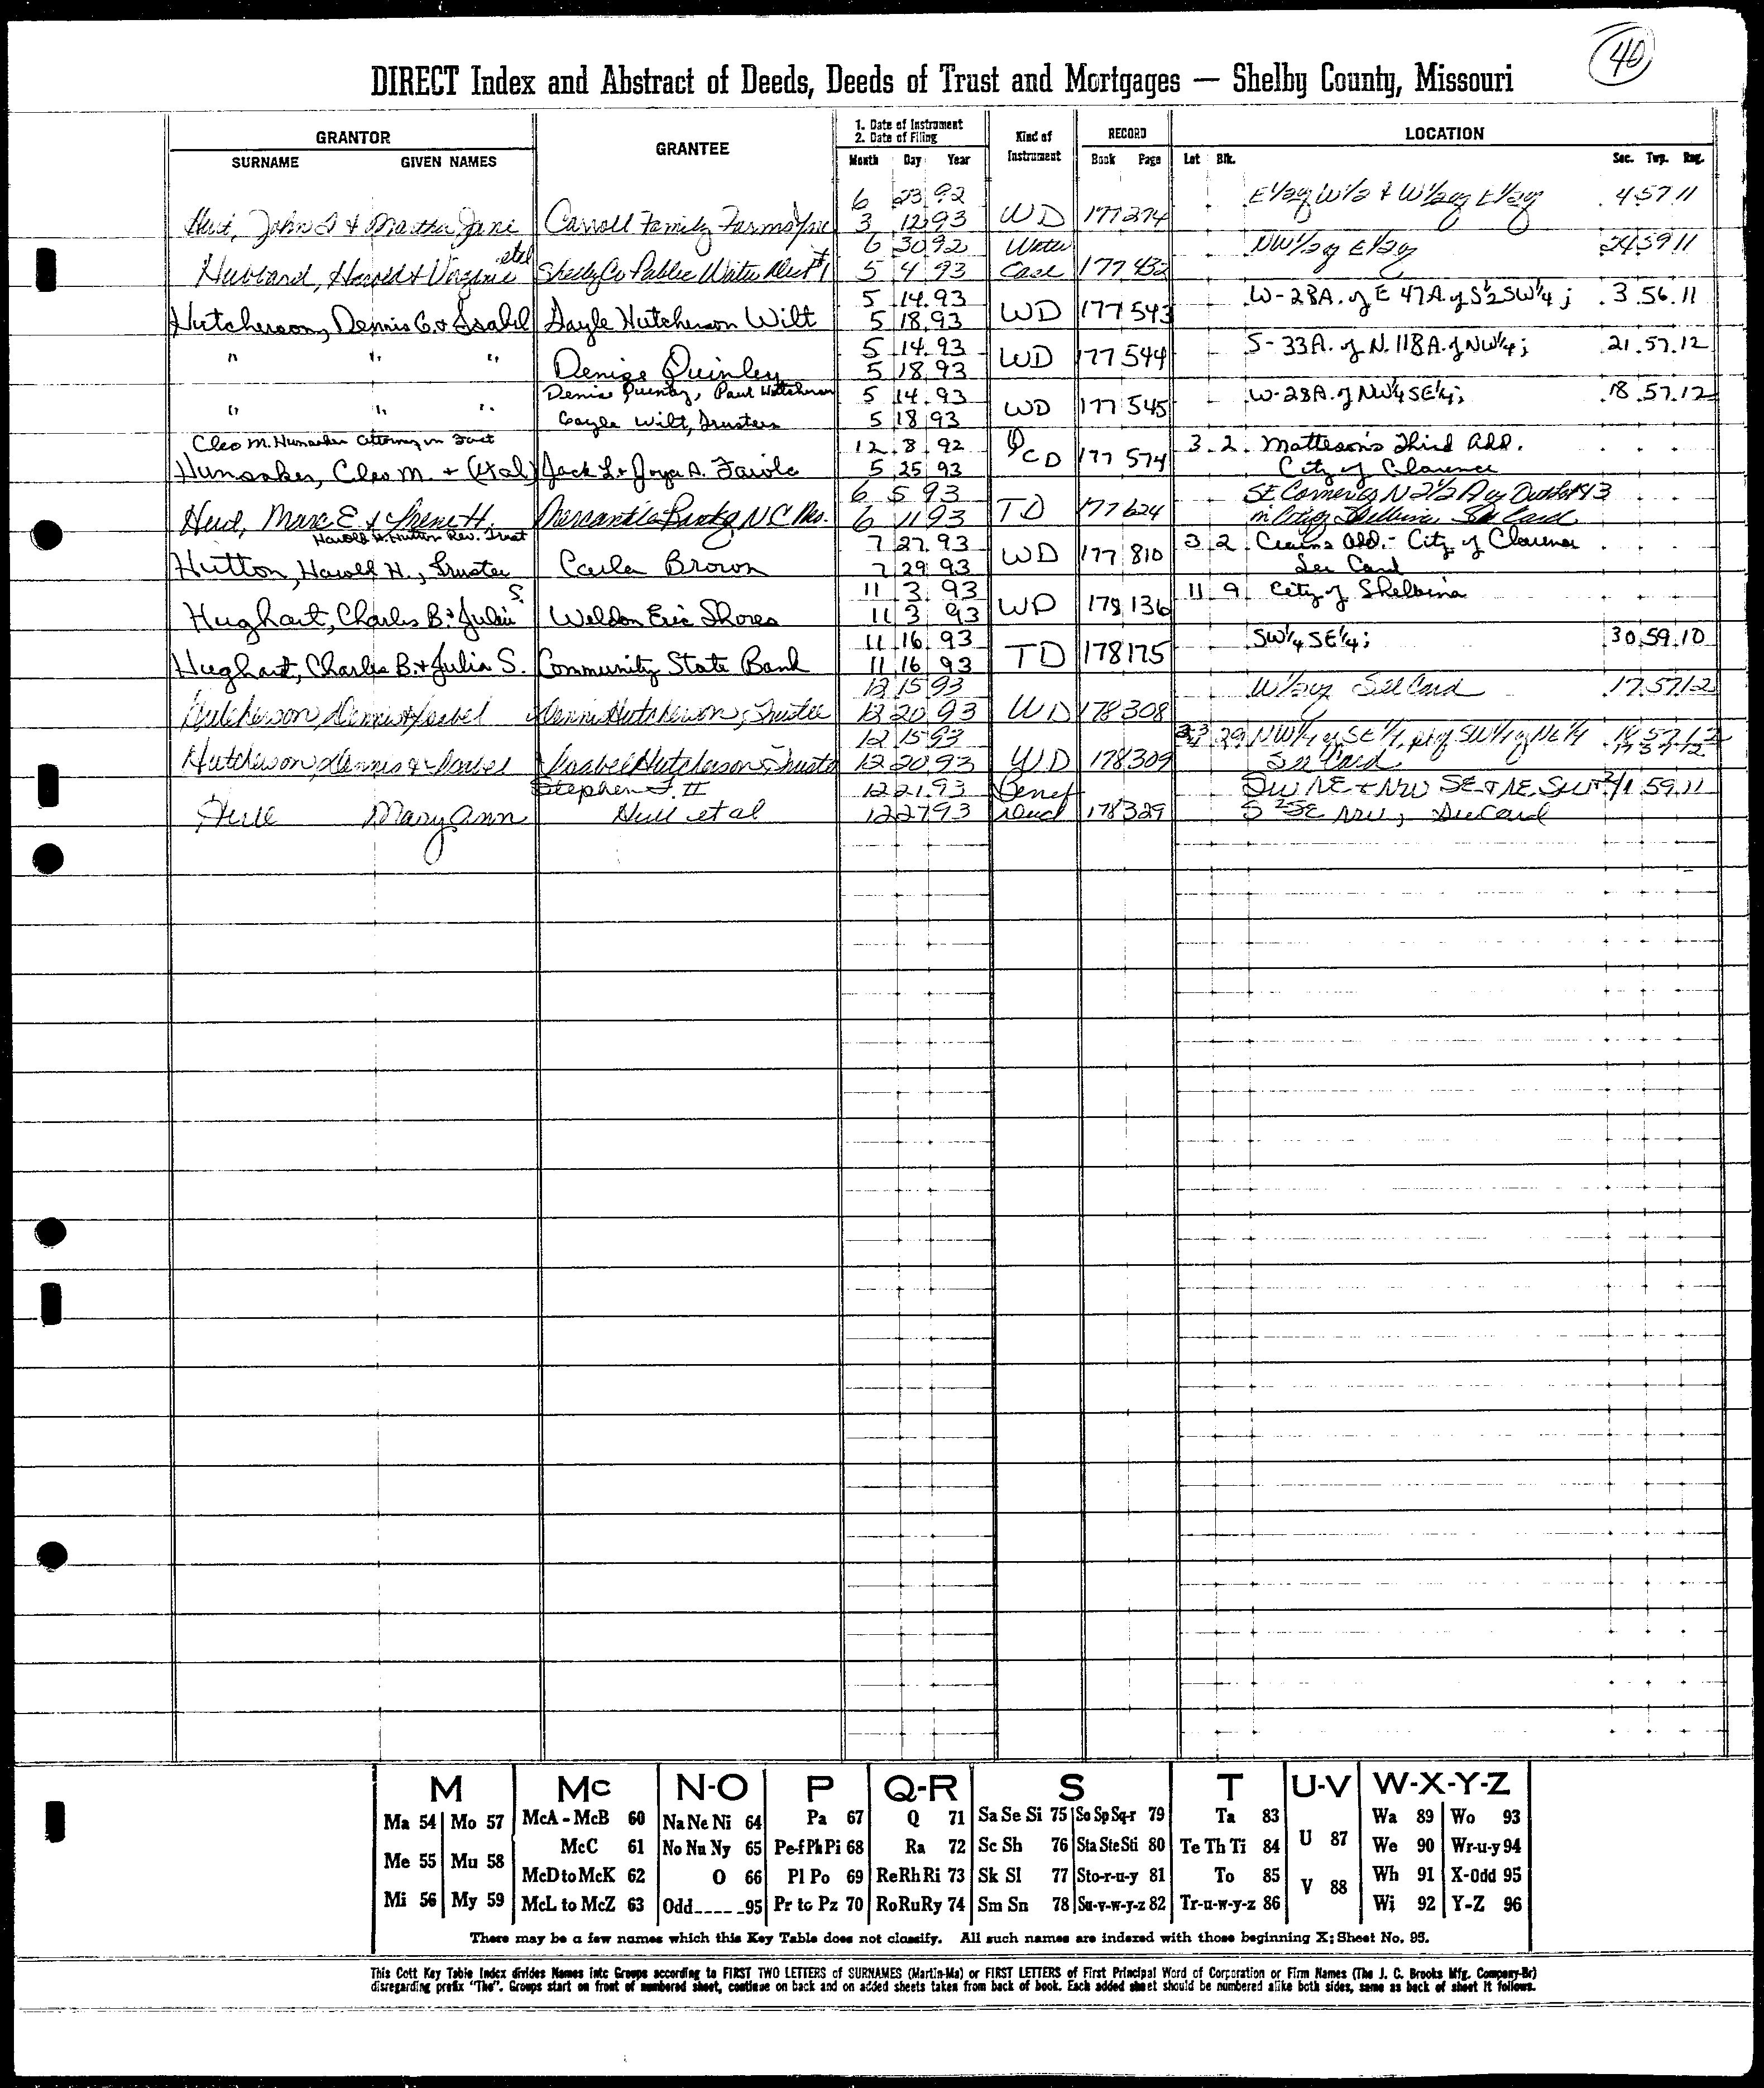 40
DIRECT Index and Abstract of Deeds, Deeds of Trust and Mortgages — Shelby County, Missouri
GRANTOR
SURNAME GIVEN NAMES
GRANTEE
1. Date of Instrument
2. Date of Filing
Month Day Year
Kind of
Instrument
RECORD
Book Page
LOCATION
Lot Blk. Sec. Twp. Rng.
6 23 92 E1/2 of W1/2 & W1/2 of E1/2 of 4 57 11
John & Martha Jane Carroll Family Farms Inc 3 12 93 WD 177 274
etal 6 30 92 Water NW1/2 of E1/2 of 59 11
Hubbard, Harold & Virginia Shelby Co Public Water Dist #1 5 4 93 177 432
5 14 93 W-28A. of E 47A. of S1/2 SW1/4; 3 56 11
Hutcherson, Dennis G. & Isabel Gayle Hutcherson Wilt 5 18 93 WD 177 543
" " " 5 14 93 WD 177 544 S-33A. of N. 118A. of NW1/4; 21 57 12
Denise Quinley 5 18 93
Denise Quinley, Paul Hutcherson 5 14 93 W-28A. of NW1/4 SE1/4; 18 57 12
" " " Gayle Wilt, Trustees 5 18 93 WD 177 545
Cleo M. Hunsaker Attorney in Fact 12 8 92 QCD 3 2 Matteson's Third Add.
Hunsaker, Cleo M. & (etal) Jack L. & Joyce A. 5 25 93 177 574 City of Clarence
6 5 93 SE Corner of N 2 1/2 A of Outlot 13
Marc E & Irene H. Mercantile Bank of N C Mo. 6 11 93 TD 177 624 in City of Shelbina See Card
Harold H. Hutton Rev. Trust 7 27 93 3 2 Add. - City of Clarence
Hutton, Harold H., Trustee Carla Brown 7 29 93 WD 177 810 See Card
S. 11 3 93 11 9 City of Shelbina
Hughart, Charles B. & Julia Weldon Eric Shores 11 3 93 WD 178 136
11 16 93 SW1/4 SE1/4; 30 59 10
Hughart, Charles B. & Julia S. Community State Bank 11 16 93 TD 178 175
12 15 93 W1/2 of See Card 17 57 12
Hutcherson, Dennis & Isabel Dennis Hutcherson, Trustee 12 20 93 WD 178 308
12 15 93 29 NW1/4 of SE1/4, pt of SW1/4 of NE1/4 18 57 12
Hutcherson, Dennis & Isabel Isabel Hutcherson Trustee 12 20 93 WD 178 309 See Card
Stephen J. II 12 21 93 Benef SW NE & NW SE & NE SW 59 11
Hull Mary Ann Hull et al 12 27 93 Deed 178 329 SE NW, See Card
M Mc N-O P Q-R S T U-V W-X-Y-Z
Ma 54 Mo 57 McA - McB 60 Na Ne Ni 64 Pa 67 Q 71 Sa Se Si 75 So Sp Sq-r 79 Ta 83 U 87 Wa 89 Wo 93
McC 61 No Nu Ny 65 Pe-f Ph Pi 68 Ra 72 Sc Sh 76 Sta Ste Sti 80 Te Th Ti 84 We 90 Wr-u-y 94
Me 55 Mu 58 McD to McK 62 O 66 Pl Po 69 Re Rh Ri 73 Sk Sl 77 Sto-r-u-y 81 To 85 V 88 Wh 91 X-Odd 95
Mi 56 My 59 McL to McZ 63 Odd_ _ _ _ _95 Pr to Pz 70 Ro Ru Ry 74 Sm Sn 78 Su-v-w-y-z 82 Tr-u-w-y-z 86 Wi 92 Y-Z 96
There may be a few names which this Key Table does not classify. All such names are indexed with those beginning X; Sheet No. 95.
This Cott Key Table Index divides Names into Groups according to FIRST TWO LETTERS of SURNAMES (Martin-Ma) or FIRST LETTERS of First Principal Word of Corporation or Firm Names (The J. C. Brooks Mfg. Company-Br)
disregarding prefix "The". Groups start on front of numbered sheet, continue on back and on added sheets taken from back of book. Each added sheet should be numbered alike both sides, same as back of sheet it follows.